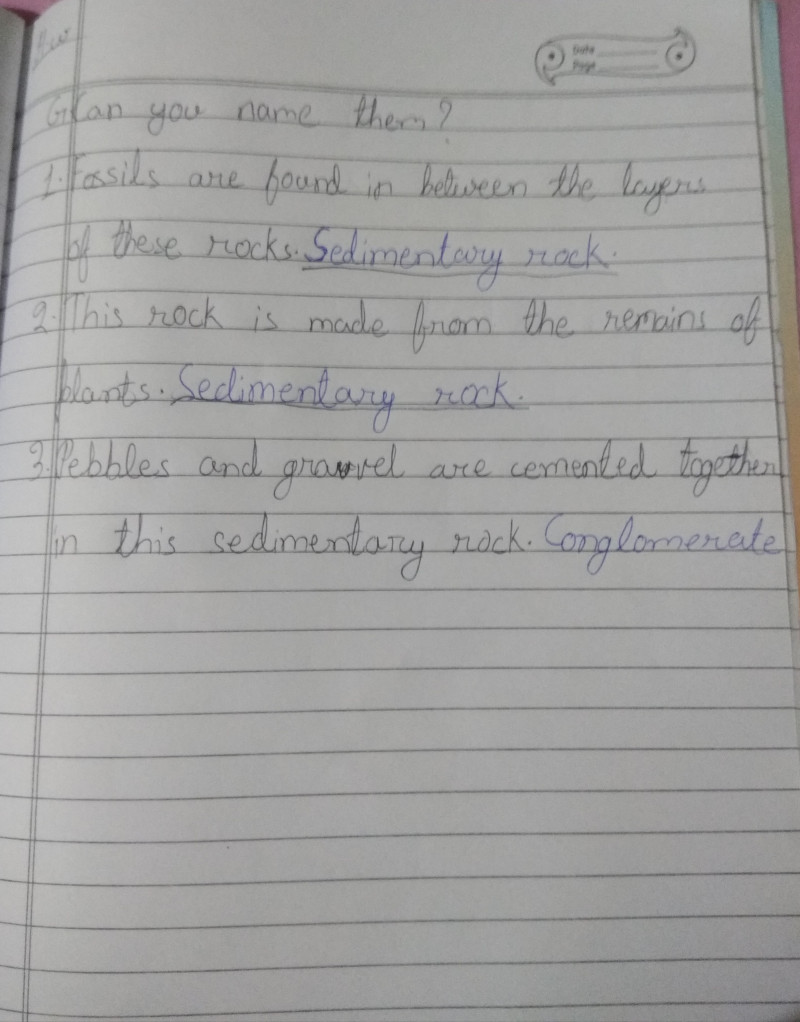 Date
Page
G. Can you name them?
1. Fossils are found in between the layers
of these rocks. Sedimentary rock.
2. This rock is made from the remains of
plants. Sedimentary rock.
3. Pebbles and gravel are cemented together
in this sedimentary rock. Conglomerate